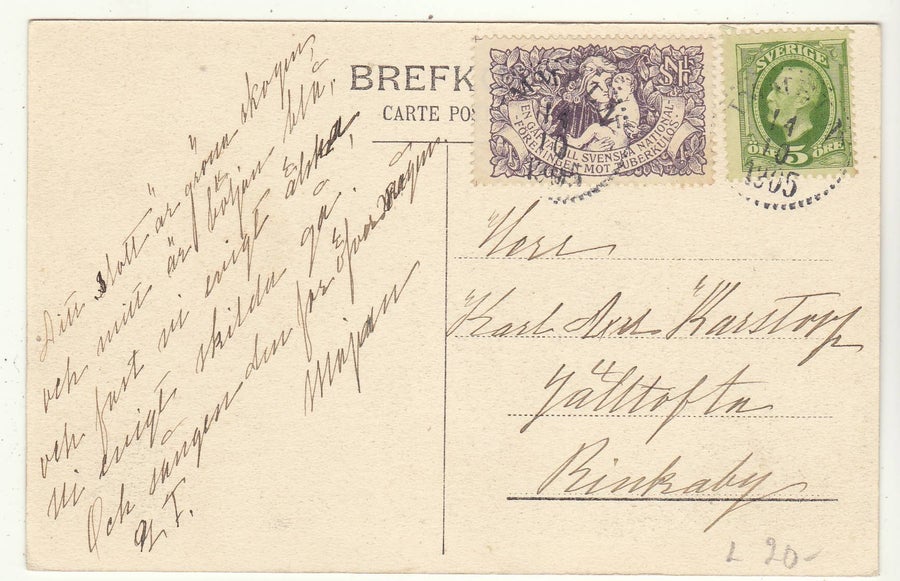 BREFK
CARTE POS
EN GÅFVA TILL SVENSKA NATIONAL-
FÖRENINGEN MOT TUBERKULOS
SVERIGE
5
ÖRE
14
10
1905
Ditt slott är gröna skogen,
och mitt är böljan blå,
och fast vi evigt älska
vi evigt skilda gå,
Och sången den for öfver vågen
Majan
Herr
Karl Axel Karstopp
Jälltofta
Rinkaby
L 20-